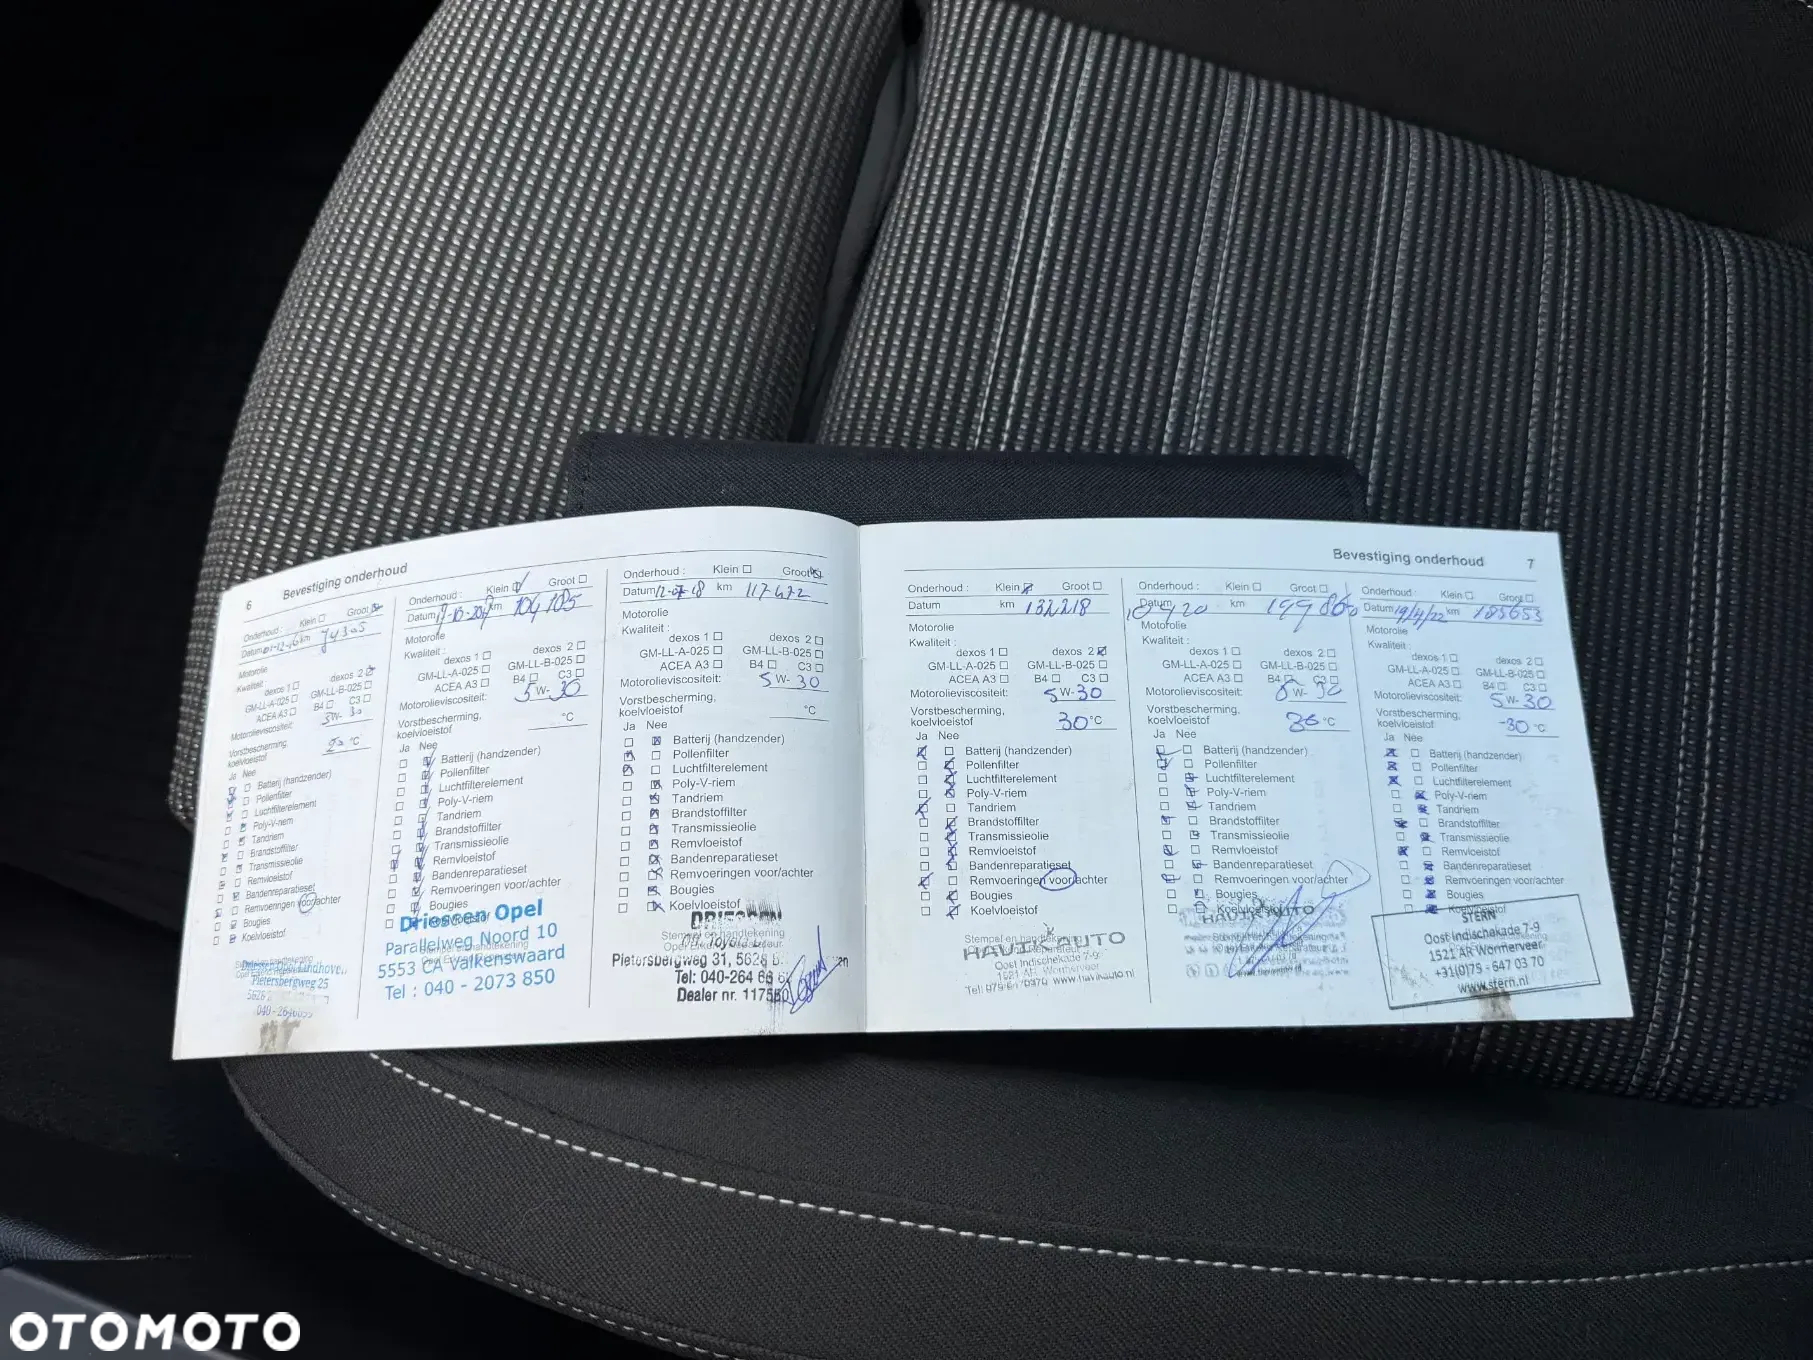 6 Bevestiging onderhoud
Onderhoud : Klein Groot
Datum 01-12-16 km 74305
Motorolie
Kwaliteit :
dexos 1 dexos 2
GM-LL-A-025 GM-LL-B-025
ACEA A3 B4 C3
Motorolieviscositeit: 5W- 30
Vorstbescherming,
koelvloeistof °C
Ja Nee
Batterij (handzender)
Pollenfilter
Luchtfilterelement
Poly-V-riem
Tandriem
Brandstoffilter
Transmissieolie
Remvloeistof
Bandenreparatieset
Remvoeringen voor/achter
Bougies
Koelvloeistof
Pietersbergweg 25
Onderhoud : Klein Groot
Datum km 104105
Motorolie
Kwaliteit :
dexos 1 dexos 2
GM-LL-A-025 GM-LL-B-025
ACEA A3 B4 C3
5 W- 30
Vorstbescherming,
koelvloeistof °C
Ja Nee
Batterij (handzender)
Pollenfilter
Luchtfilterelement
Poly-V-riem
Tandriem
Brandstoffilter
Transmissieolie
Remvloeistof
Bandenreparatieset
Remvoeringen voor/achter
Bougies
Koelvloeistof
Driessen Opel
Parallelweg Noord 10
5553 CA Valkenswaard
Tel : 040 - 2073 850
Onderhoud : Klein Groot
Datum 12-07-18 km 117472
Motorolie
Kwaliteit :
dexos 1 dexos 2
GM-LL-A-025 GM-LL-B-025
ACEA A3 B4 C3
Motorolieviscositeit: 5 W- 30
Vorstbescherming,
koelvloeistof °C
Ja Nee
Batterij (handzender)
Pollenfilter
Luchtfilterelement
Poly-V-riem
Tandriem
Brandstoffilter
Transmissieolie
Remvloeistof
Bandenreparatieset
Remvoeringen voor/achter
Bougies
Koelvloeistof
DRIESSEN
Stempel en handtekening
Pietersbergweg 31, 5628
Tel: 040-264 66
Dealer nr. 117560
Bevestiging onderhoud 7
Onderhoud : Klein Groot
Datum km 132218
Motorolie
Kwaliteit :
dexos 1 dexos 2
GM-LL-A-025 GM-LL-B-025
ACEA A3 B4 C3
Motorolieviscositeit: 5 W- 30
Vorstbescherming,
koelvloeistof 30 °C
Ja Nee
Batterij (handzender)
Pollenfilter
Luchtfilterelement
Poly-V-riem
Tandriem
Brandstoffilter
Transmissieolie
Remvloeistof
Bandenreparatieset
Remvoeringen voor/achter
Bougies
Koelvloeistof
Stempel en handtekening
HAVIK AUTO
Oost Indischekade 7-9
1521 AR Wormerveer
www.havikauto.nl
Onderhoud : Klein Groot
Datum km
Motorolie
Kwaliteit :
dexos 1 dexos 2
GM-LL-A-025 GM-LL-B-025
ACEA A3 B4 C3
Motorolieviscositeit: W- 30
Vorstbescherming,
koelvloeistof °C
Ja Nee
Batterij (handzender)
Pollenfilter
Luchtfilterelement
Poly-V-riem
Tandriem
Brandstoffilter
Transmissieolie
Remvloeistof
Bandenreparatieset
Remvoeringen voor/achter
Bougies
Koelvloeistof
HAVIK AUTO
Onderhoud : Klein Groot
Datum 19/4/22 km 185653
Motorolie
Kwaliteit :
dexos 1 dexos 2
GM-LL-A-025 GM-LL-B-025
ACEA A3 B4 C3
Motorolieviscositeit: 5 W- 30
Vorstbescherming,
koelvloeistof -30 °C
Ja Nee
Batterij (handzender)
Pollenfilter
Luchtfilterelement
Poly-V-riem
Tandriem
Brandstoffilter
Transmissieolie
Remvloeistof
Bandenreparatieset
Remvoeringen voor/achter
Bougies
Koelvloeistof
STERN
Oost Indischekade 7-9
1521 AR Wormerveer
+31(0)75 - 647 03 70
www.stern.nl
OTOMOTO